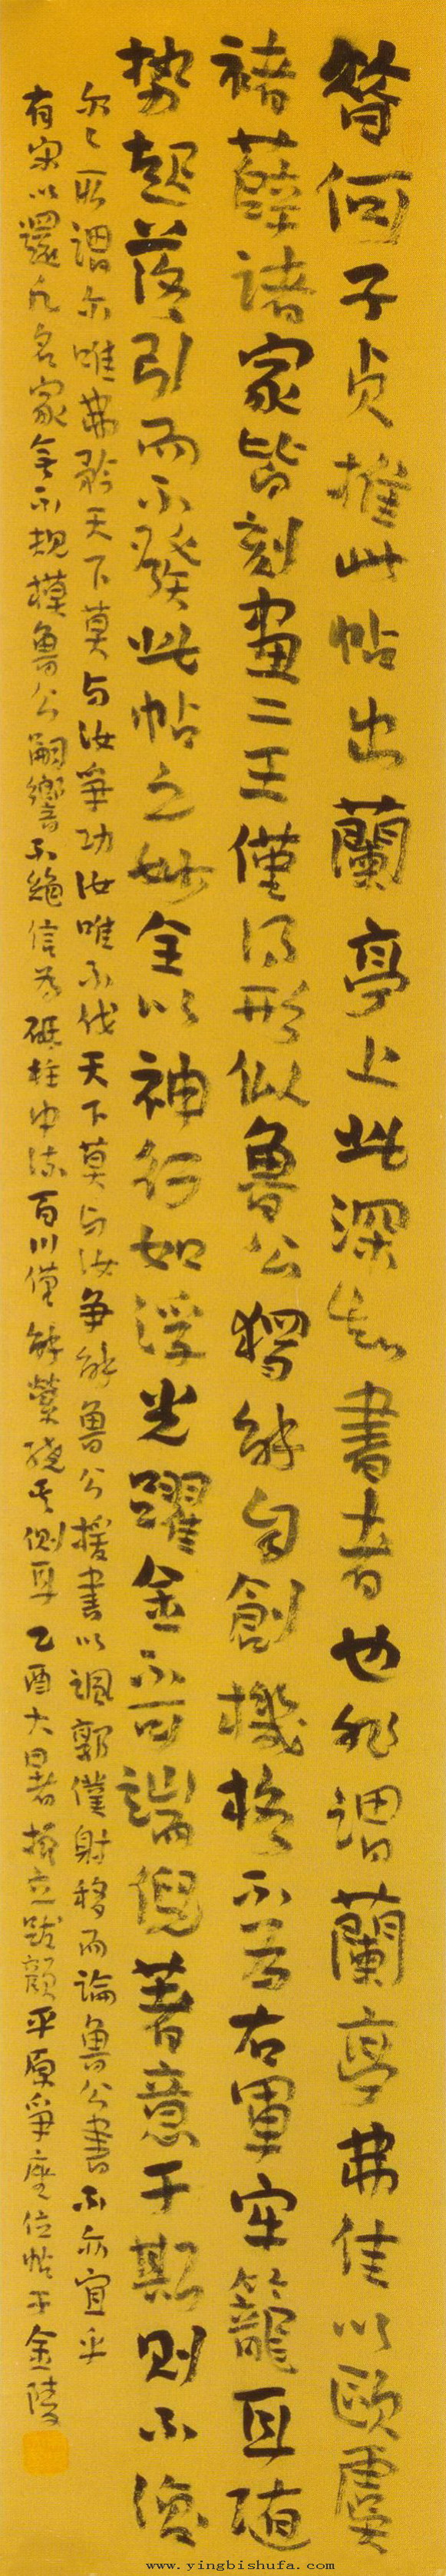 昔何子貞推此帖出蘭亭上此深知書者也非謂蘭亭弗佳以歐虞
褚薛諸家皆刻畫二王僅得形似魯公獨能自創機杼不為右軍牢籠耳隨
勢起落引而不發此帖之妙全以神行如浮光躍金不可端倪著意于斯則不復
爾爾所謂尔唯弗矜天下莫与汝爭功汝唯不伐天下莫与汝争能魯公援書以諷郭僕射移而論魯公書不亦宜乎
有宋以還凡名家無不規模魯公嗣響不絕信為砥柱中流百川僅能縈繞其侧耳乙酉大暑 立跋顏平原爭座位帖于金陵
www.yingbishufa.com